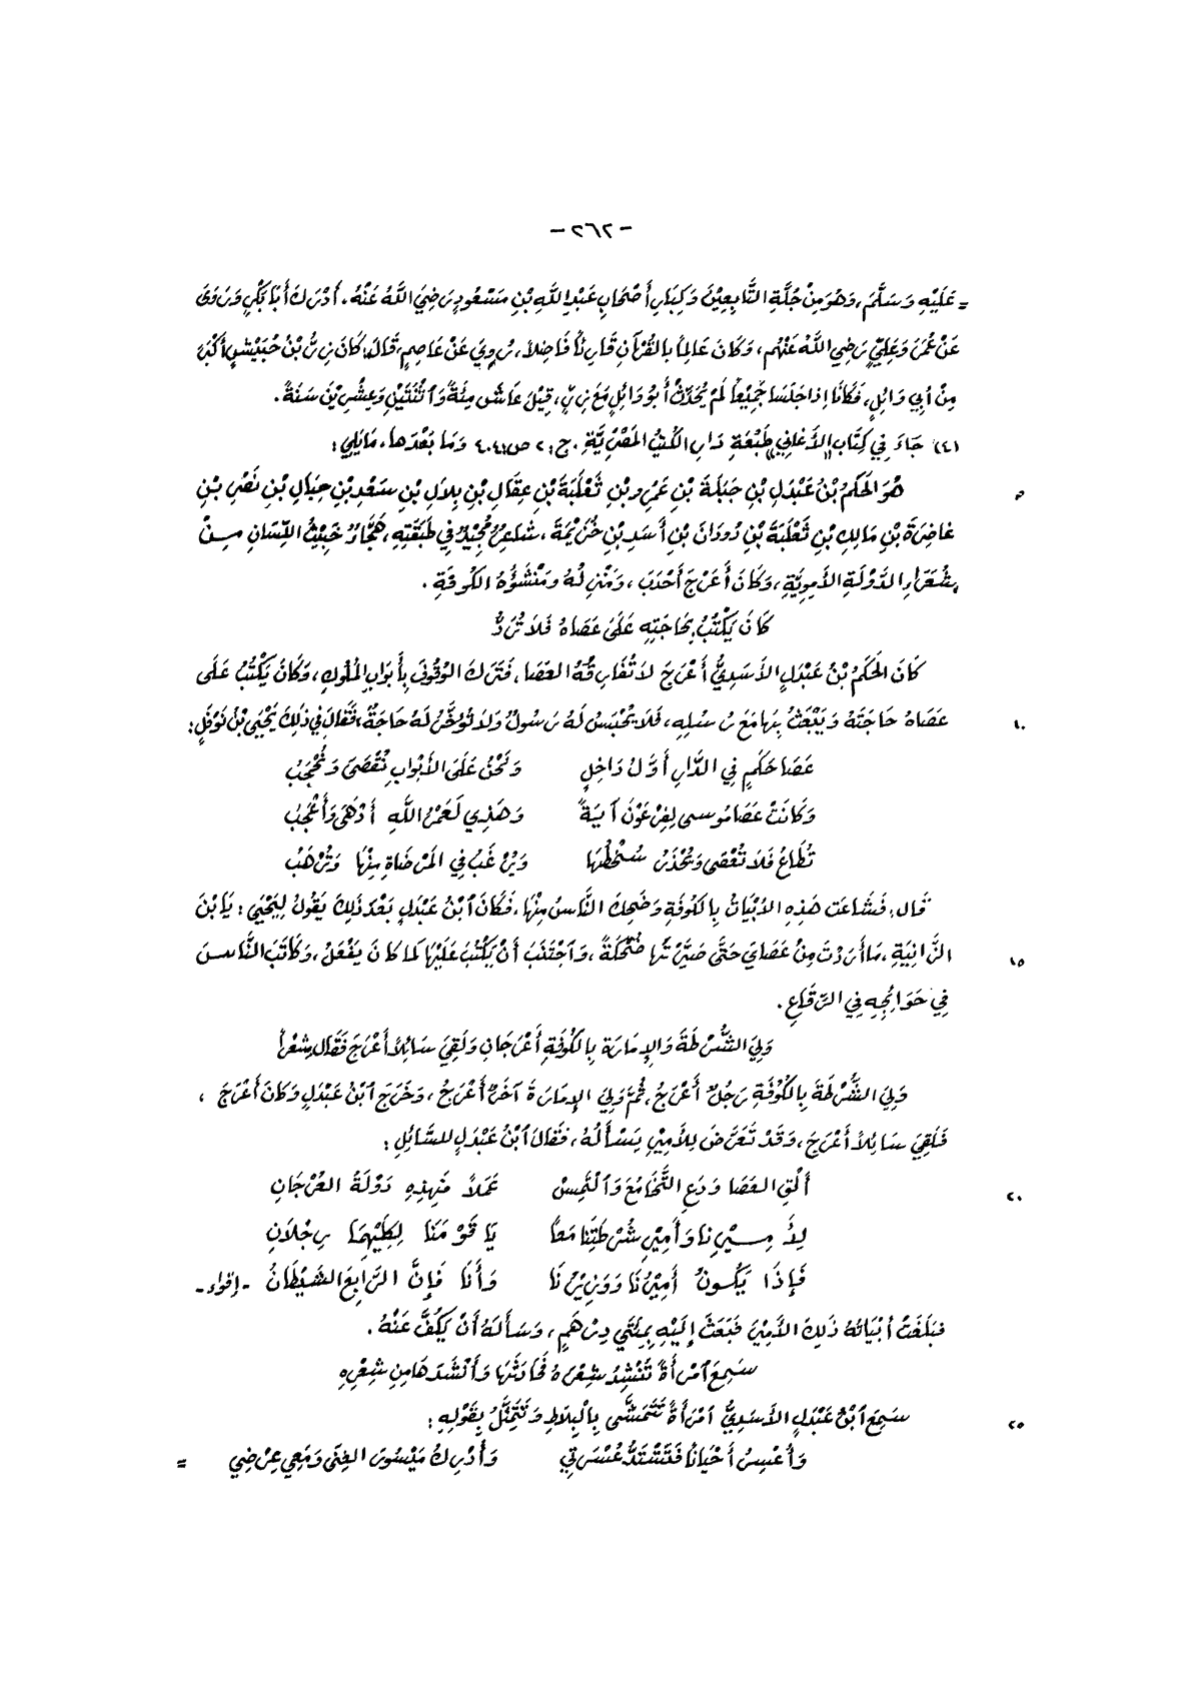 - ٢٦٢ -
= عَلَيْهِ وَسَلَّمَ، وَهُوَ مِنْ جُلَّةِ التَّابِعِيْنَ وَكِبَارِ أَصْحَابِ عَبْدِ اللَّهِ بْنِ مَسْعُودٍ رَضِيَ اللَّهُ عَنْهُ. أَدْرَكَ أَبَا بَكْرٍ وَرَوَى
عَنْ عُمَرَ وَعَلِيٍّ رَضِيَ اللَّهُ عَنْهُم، وَكَانَ عَالِماً بِالقُرْآنِ قَارِئاً فَاضِلاً، رُوِيَ عَنْ عَاصِمٍ، قَالَ: كَانَ زِرُّ بْنُ حُبَيْشٍ أَكْبَرَ
مِنْ أَبِي وَائِلٍ، فَكَانَا إِذَا جَلَسَا جَمِيْعاً لَمْ يُحَدِّثْ أَبُو وَائِلٍ مَعَ زِرٍّ، قِيْلَ عَاشَ مِئَةً وَٱثْنَتَيْنِ وَعِشْرِيْنَ سَنَةً.
(٤١) جَاءَ فِي كِتَابِ «الأَغَانِي» طَبْعَةِ دَارِ الكُتُبِ المَصْرِيَّةِ. ج: ٢ ص: ٤٠٤ وَمَا بَعْدَهَا، مَا يَلِي:
٥ هُوَ الحَكَمُ بْنُ عَبْدَلِ بْنِ جَبَلَةَ بْنِ عَمْرِو بْنِ ثَعْلَبَةَ بْنِ عِقَالِ بْنِ بِلاَلِ بْنِ سَعْدِ بْنِ حِبَالِ بْنِ نَصْرِ بْنِ
غَاضِرَةَ بْنِ مَالِكِ بْنِ ثَعْلَبَةَ بْنِ دُودَانَ بْنِ أَسَدِ بْنِ خُزَيْمَةَ، شَاعِرٌ مُجِيْدٌ فِي طَبَقَتِهِ، هَجَّاءٌ خَبِيْثُ اللِّسَانِ مِنْ
شُعَرَاءِ الدَّوْلَةِ الأُمَوِيَّةِ، وَكَانَ أَعْرَجَ أَحْدَبَ، وَمَنْزِلُهُ وَمَنْشَؤُهُ الكُوفَةِ.
كَانَ يَكْتُبُ بِحَاجَتِهِ عَلَى عَصَاهُ فَلاَ تُرَدُّ
كَانَ الحَكَمُ بْنُ عَبْدَلٍ الأَسَدِيُّ أَعْرَجَ لاَ تُفَارِقُهُ العَصَا، فَتَرَكَ الوُقُوفَ بِأَبْوَابِ المُلُوكِ، وَكَانَ يَكْتُبُ عَلَى
١٠ عَصَاهُ حَاجَتَهُ وَيَبْعَثُ بِهَا مَعَ رُسُلِهِ، فَلاَ يُحْبَسُ لَهُ رَسُولٌ وَلاَ تُؤَخَّرُ لَهُ حَاجَةٌ، فَقَالَ فِي ذَلِكَ يَحْيَى بْنُ نَوْفَلٍ:
عَصَا حَكَمٍ فِي الدَّارِ أَوَّلُ دَاخِلٍ وَنَحْنُ عَلَى الأَبْوَابِ نُقْصَى وَنُحْجَبُ
وَكَانَتْ عَصَا مُوسَى لِفِرْعَوْنَ آيَةً وَهَذِي لَعَمْرُ اللَّهِ أَدْهَى وَأَعْجَبُ
تُطَاعُ فَلاَ تُعْصَى وَيُحْذَرُ سُخْطُهَا وَيُرْغَبُ فِي المَرْضَاةِ مِنْهَا وَتُرْهَبُ
قَالَ: فَشَاعَتْ هَذِهِ الأَبْيَاتُ بِالكُوفَةِ وَضَحِكَ النَّاسُ مِنْهَا، فَكَانَ ٱبْنُ عَبْدَلٍ بَعْدَ ذَلِكَ يَقُولُ لِيَحْيَى: يَا ٱبْنَ
١٥ الزَّانِيَةِ، مَا أَرَدْتَ مِنْ عَصَايَ حَتَّى صَيَّرْتَهَا ضُحْكَةً، وَٱجْتَنَبَ أَنْ يَكْتُبَ عَلَيْهَا كَمَا كَانَ يَفْعَلُ، وَكَاتَبَ النَّاسَ
فِي حَوَائِجِهِ فِي الرِّقَاعِ.
وَلِيَ الشُّرْطَةَ وَالإِمَارَةَ بِالكُوفَةِ أَعْرَجَانِ وَلَقِيَ سَائِلاً أَعْرَجَ فَقَالَ شِعْراً
وَلِيَ الشُّرْطَةَ بِالكُوفَةِ رَجُلٌ أَعْرَجُ، ثُمَّ وَلِيَ الإِمَارَةَ آخَرُ أَعْرَجُ، وَخَرَجَ ٱبْنُ عَبْدَلٍ وَكَانَ أَعْرَجَ،
فَلَقِيَ سَائِلاً أَعْرَجَ، وَقَدْ تَعَرَّضَ لِلأَمِيْرِ يَسْأَلُهُ، فَقَالَ ٱبْنُ عَبْدَلٍ لِلسَّائِلِ:
٢٠ أَلْقِ العَصَا وَدَعِ التَّخَامُعَ وَٱلْتَمِسْ عَمَلاً فَهَذِهِ دَوْلَةُ العُرْجَانِ
لِأَمِيْرِنَا وَأَمِيْرِ شُرْطَتِنَا مَعاً يَا قَوْمَنَا لِكِلَيْهِمَا رِجْلاَنِ
فَإِذَا يَكُونُ أَمِيْرُنَا وَوَزِيْرُنَا وَأَنَا فَإِنَّ الرَّابِعَ الشَّيْطَانُ - إقواء -
فَبَلَغَتْ أَبْيَاتُهُ ذَلِكَ الأَمِيْرَ فَبَعَثَ إِلَيْهِ بِمِئَتَي دِرْهَمٍ، وَسَأَلَهُ أَنْ يَكُفَّ عَنْهُ.
سَمِعَ ٱمْرَأَةً تُنْشِدُ شِعْرَهُ فَحَادَثَهَا وَأَنْشَدَهَا مِن شِعْرِهِ
٢٥ سَمِعَ ٱبْنُ عَبْدَلٍ الأَسَدِيُّ ٱمْرَأَةً تَتَمَشَّى بِالْبِلاَطِ وَتَتَمَثَّلُ بِقَوْلِهِ:
وَأُعْسِرُ أَحْيَاناً فَتَشْتَدُّ عُسْرَتِي وَأُدْرِكُ مَيْسُورَ الغِنَى وَمَعِي عِرْضِي =